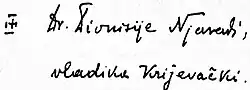 ✠ Dr. Dionisije Njaradi,
vladika Križevački.